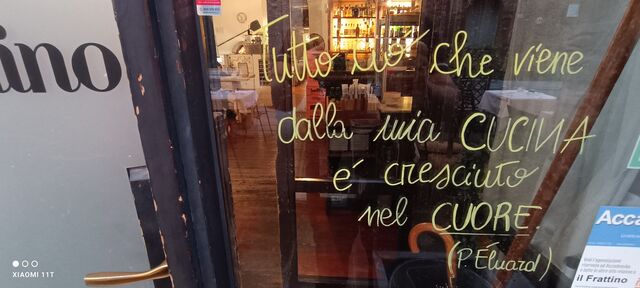 ino
Tutto ciò che viene
dalla mia CUCINA
é cresciuto
nel CUORE.
(P. Éluard)
Acca
il Frattino
XIAOMI 11T